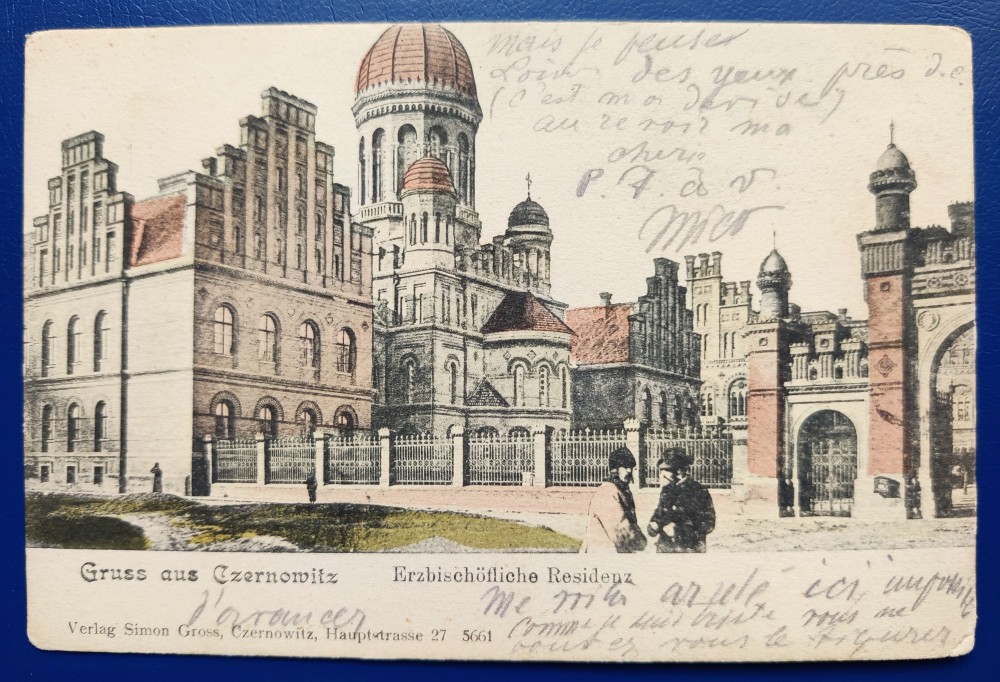 mais je pense
Loin des yeux près de
(C'est ma devise)
au revoir ma
cheri
P. F. à v.
Mico
Gruss aus Czernowitz
Erzbischöfliche Residenz
Me voila ici,
d'avancer
comme je suis triste vous ne
vous le figurez
Verlag Simon Gross, Czernowitz, Hauptstrasse 27 5661